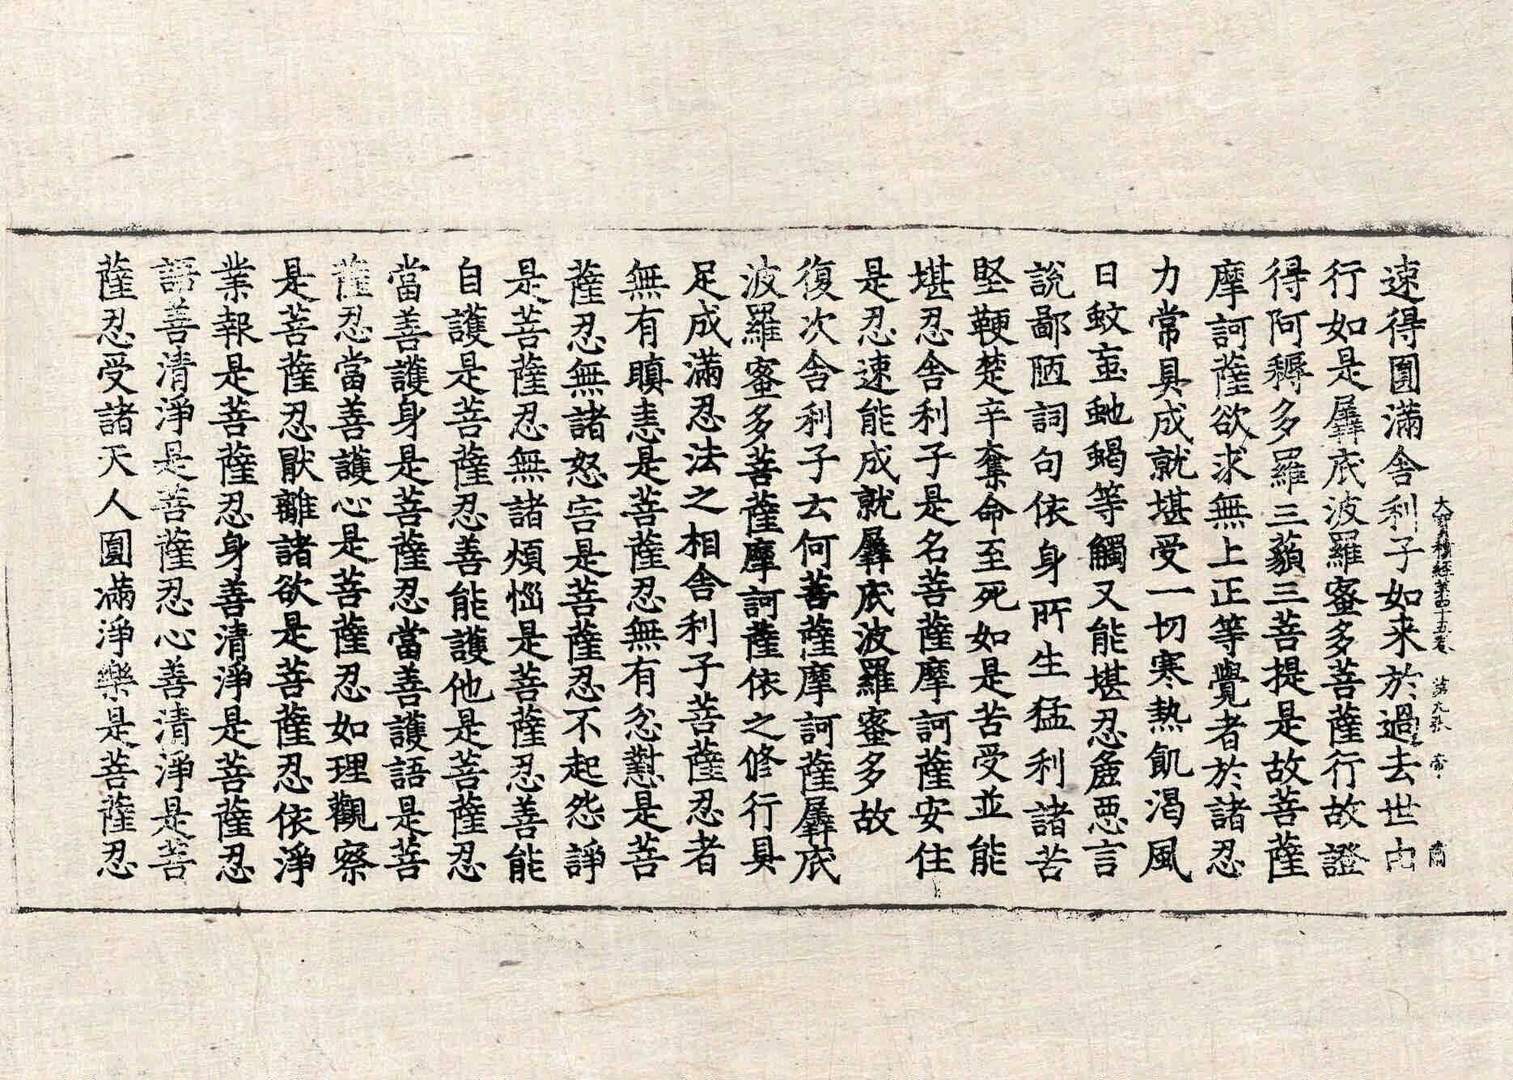 大寶積經苐四十五卷 苐九張 帝
速得圓滿舍利子如来於過去世由
行如是羼底波羅蜜多菩薩行故證
得阿耨多羅三藐三菩提是故菩薩
摩訶薩欲求無上正等覺者於諸忍
力常具成就堪受一切寒熱飢渴風
日蚊䖟虵蝎等觸又能堪忍麁惡言
說鄙陋詞句依身所生猛利諸苦
堅鞕楚辛奪命至死如是苦受並能
堪忍舍利子是名菩薩摩訶薩安住
是忍速能成就羼底波羅蜜多故
復次舍利子云何菩薩摩訶薩羼底
波羅蜜多菩薩摩訶薩依之修行具
足成滿忍法之相舍利子菩薩忍者
無有瞋恚是菩薩忍無有忿懟是菩
薩忍無諸怒害是菩薩忍不起怨諍
是菩薩忍無諸煩惱是菩薩忍善能
自護是菩薩忍善能護他是菩薩忍
當善護身是菩薩忍當善護語是菩
薩忍當善護心是菩薩忍如理觀察
是菩薩忍猒離諸欲是菩薩忍依淨
業報是菩薩忍身善清淨是菩薩忍
語善清淨是菩薩忍心善清淨是菩
薩忍受諸天人圓滿淨樂是菩薩忍